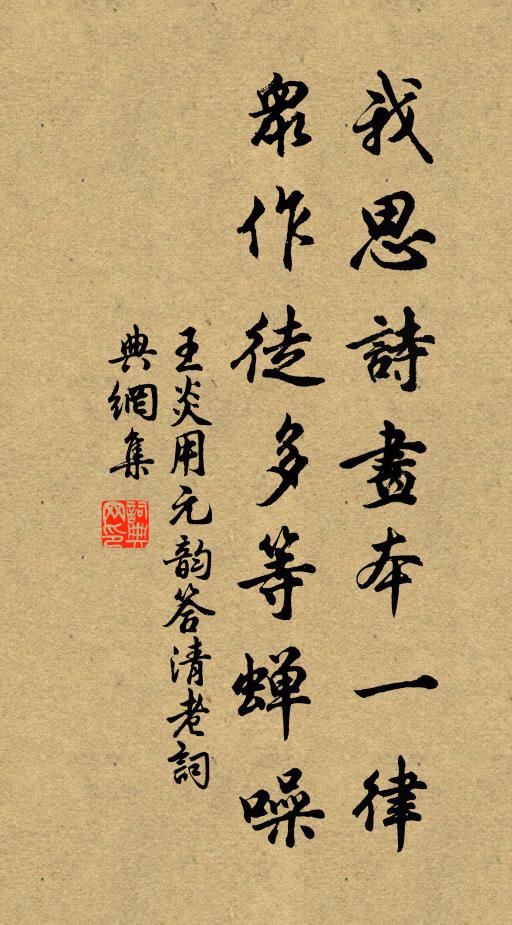 我思詩畫本一律
眾作徒多等蝉噪
王炎用元韵答清老詞
典網集
詞典網印